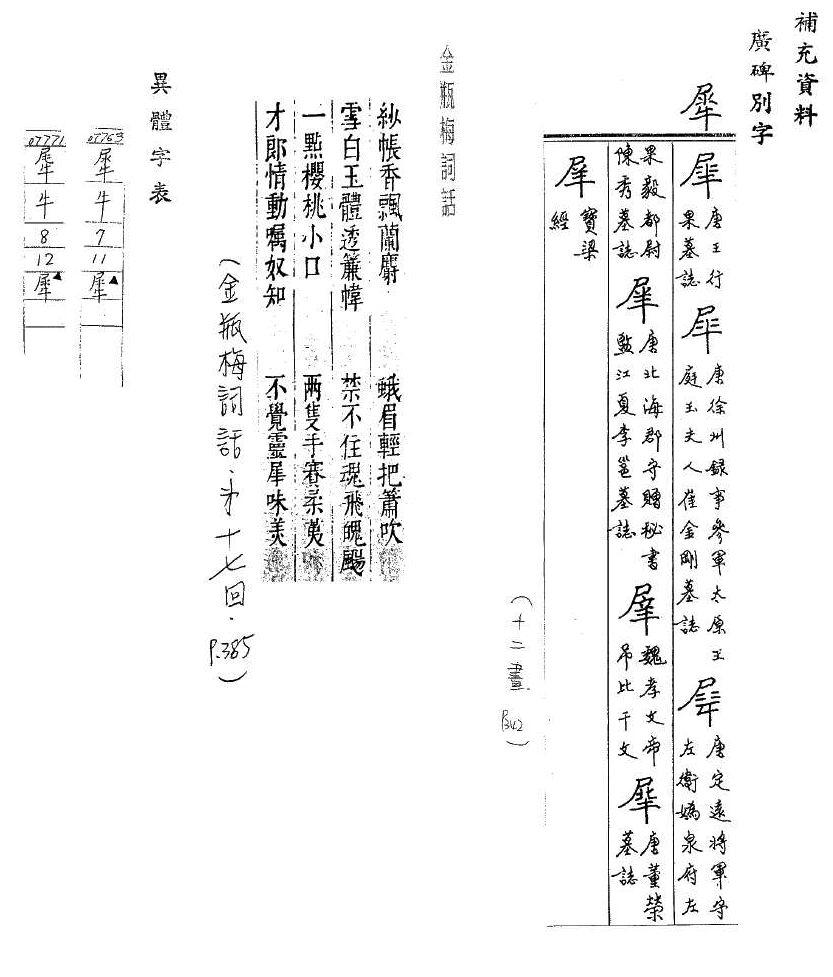 補充資料
廣碑別字
犀
犀 唐王行果墓誌 犀 唐徐州録事參軍太原王庭玉夫人崔金剛墓誌 犀 唐定遠將軍守左衛嬀泉府左
果毅都尉陳秀墓誌 犀 唐北海郡守贈秘書監江夏李邕墓誌 犀 魏孝文帝吊比干文 犀 唐董榮墓誌
犀 寶梁經
（十二畫 P342）
金瓶梅詞話
紗帳香飄蘭麝 蛾眉輕把簫吹
雪白玉體透簾幃 禁不住魂飛魄颺
一點櫻桃小口 兩隻手賽柔荑
才郎情動囑奴知 不覺靈犀味美
（金瓶梅詞話．第十七回．P.385）
異體字表
07763 犀 牛 7 11 犀
07771 犀 牛 8 12 犀